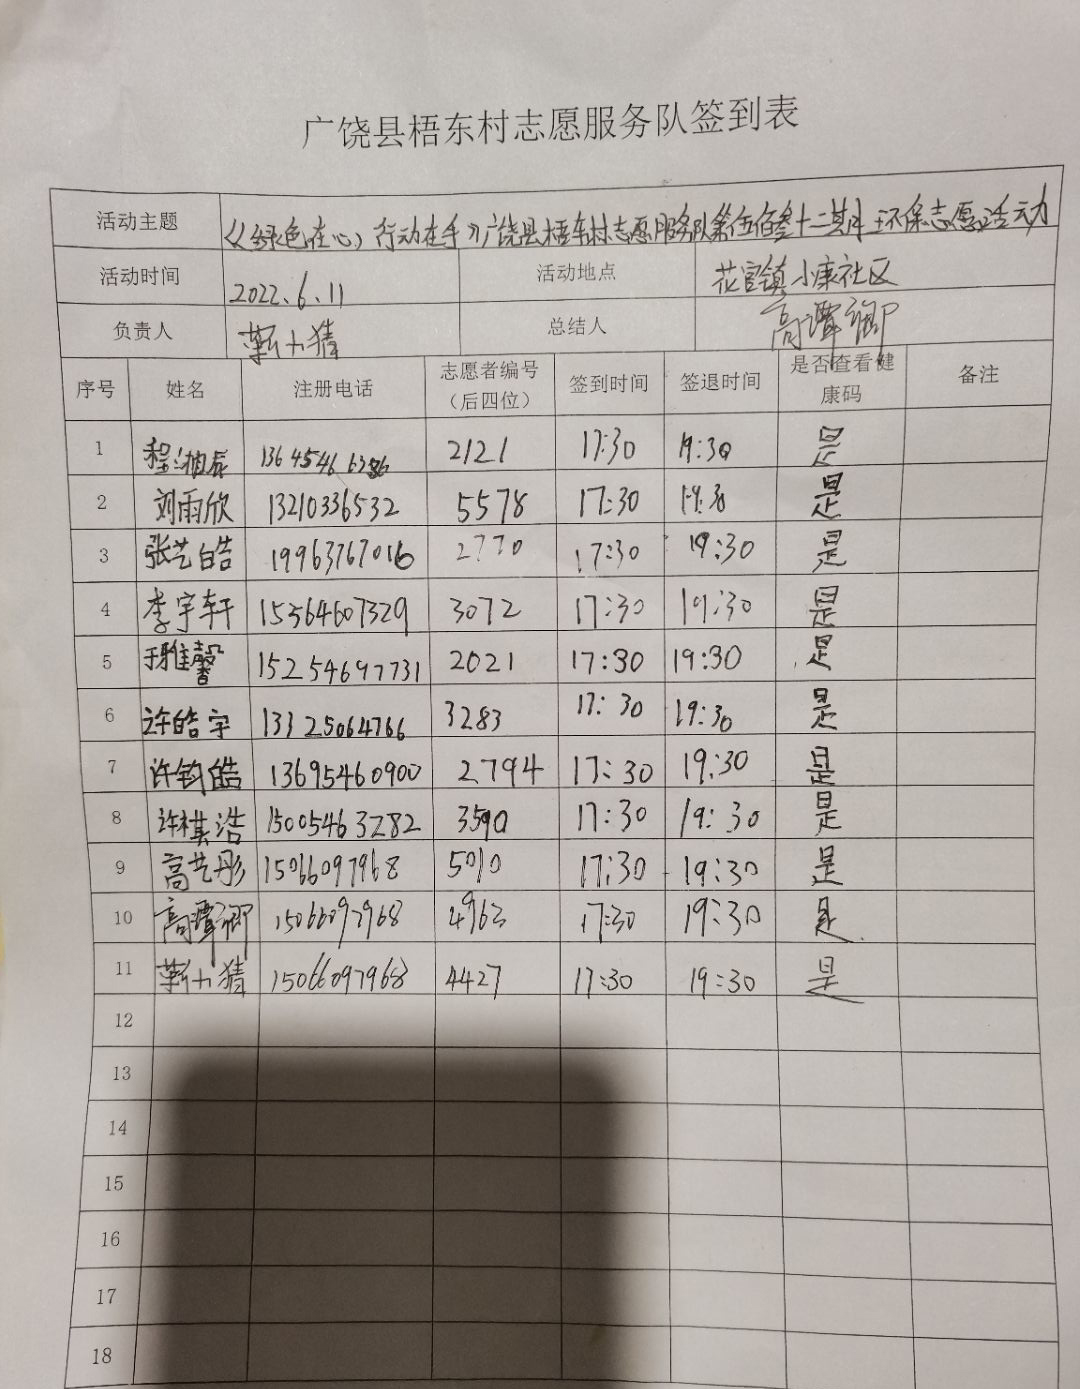 广饶县梧东村志愿服务队签到表
活动主题 《绿色在心,行动在手》广饶县梧东村志愿服务队第伍佰叁十二期环保志愿活动
活动时间 2022.6.11 活动地点 花官镇小康社区
负责人 总结人 高潭卿
序号 姓名 注册电话 志愿者编号（后四位） 签到时间 签退时间 是否查看健康码 备注
1 程湘辰 2121 17:30 19:30 是
2 刘雨欣 13210336532 5578 17:30 19:30 是
3 张艺皓 19963767016 2770 17:30 19:30 是
4 李宇轩 15364607329 3072 17:30 19:30 是
5 于雅馨 15254697731 2021 17:30 19:30 是
6 许皓宇 13325064766 3283 17:30 19:30 是
7 许钧皓 13695460900 2794 17:30 19:30 是
8 许棋浩 15005463282 3590 17:30 19:30 是
9 高艺彤 15066097968 5010 17:30 19:30 是
10 高潭卿 15066097968 4963 17:30 19:30 是
11 15066097968 4427 17:30 19:30 是
12
13
14
15
16
17
18